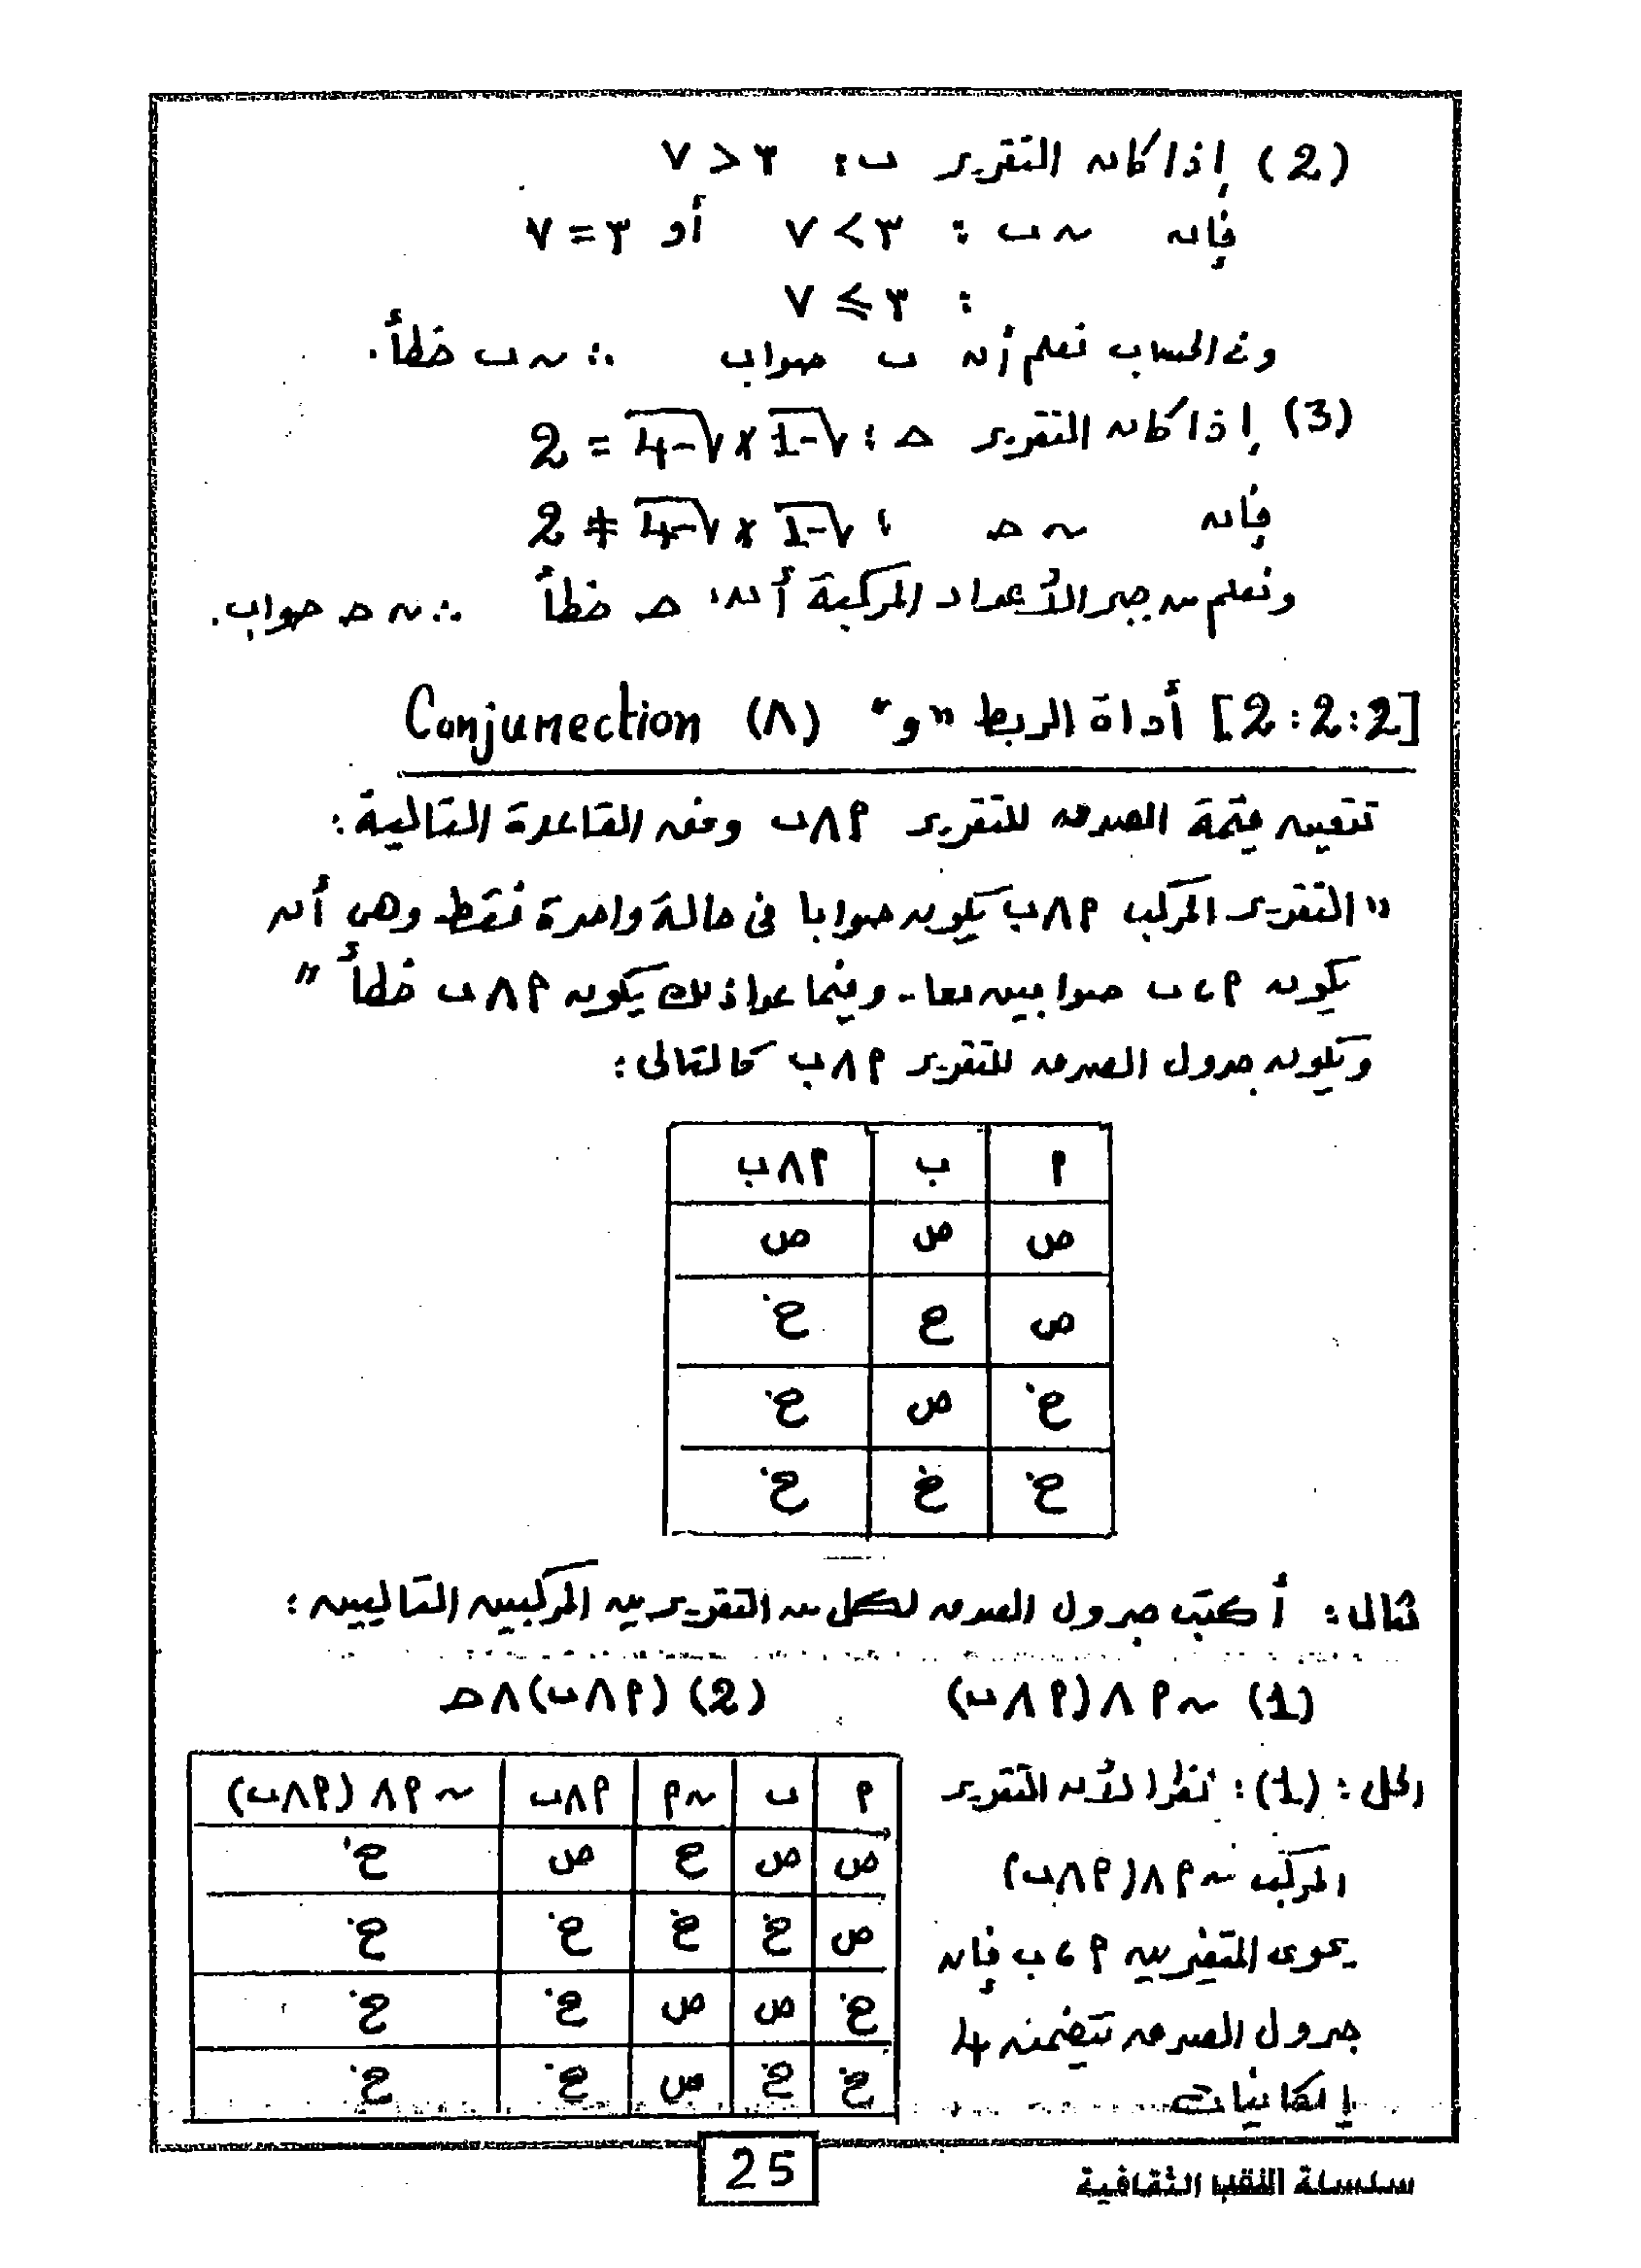 (2) إذا كان التقرير ب : ٧ > ٣
فإن ~ب : ٧ < ٣ أو ٧ = ٣
: ٧ ⩽ ٣
ومن الحساب نعلم أن ب صواب ∴ ~ب خطأ.
(3) إذا كان التقرير حـ : √-1 × √-4 = 2
فإن ~حـ : √-1 × √-4 ≠ 2
ونعلم من جبر الأعداد المركبة أن: حـ خطأ ∴ ~حـ صواب.
[2:2:2] أداة الربط "و" (∧) Conjunection
تتعين قيمة الصدق للتقرير ٩∧ب وفق القاعدة التالية:
"التقرير المركب ٩∧ب يكون صوابا فى حالة واحدة فقط وهى أن
يكون ٩، ب صوابين معا.. وفيما عدا ذلك يكون ٩∧ب خطأ"
ويكون جدول الصدق للتقرير ٩∧ب كالتالى:
٩ ب ٩∧ب
ص ص ص
ص ع خ
خ ص خ
خ خ خ
مثال: أكتب جدول الصدق لكل من التقريرين المركبين التاليين:
(1) ~٩∧(٩∧ب) (2) (٩∧ب)∧حـ
الحل: (1): نظرا لأن التقرير
المركب ~٩∧(٩∧ب)
يحوى المتغيرين ٩، ب فإن
جدول الصدق تتضمن 4
إمكانيات
٩ ب ~٩ ٩∧ب ~٩∧(٩∧ب)
ص ص ع ص خ
ص خ خ خ خ
خ ص ص خ خ
خ خ ص خ خ
25
سلسلة النقب الثقافية